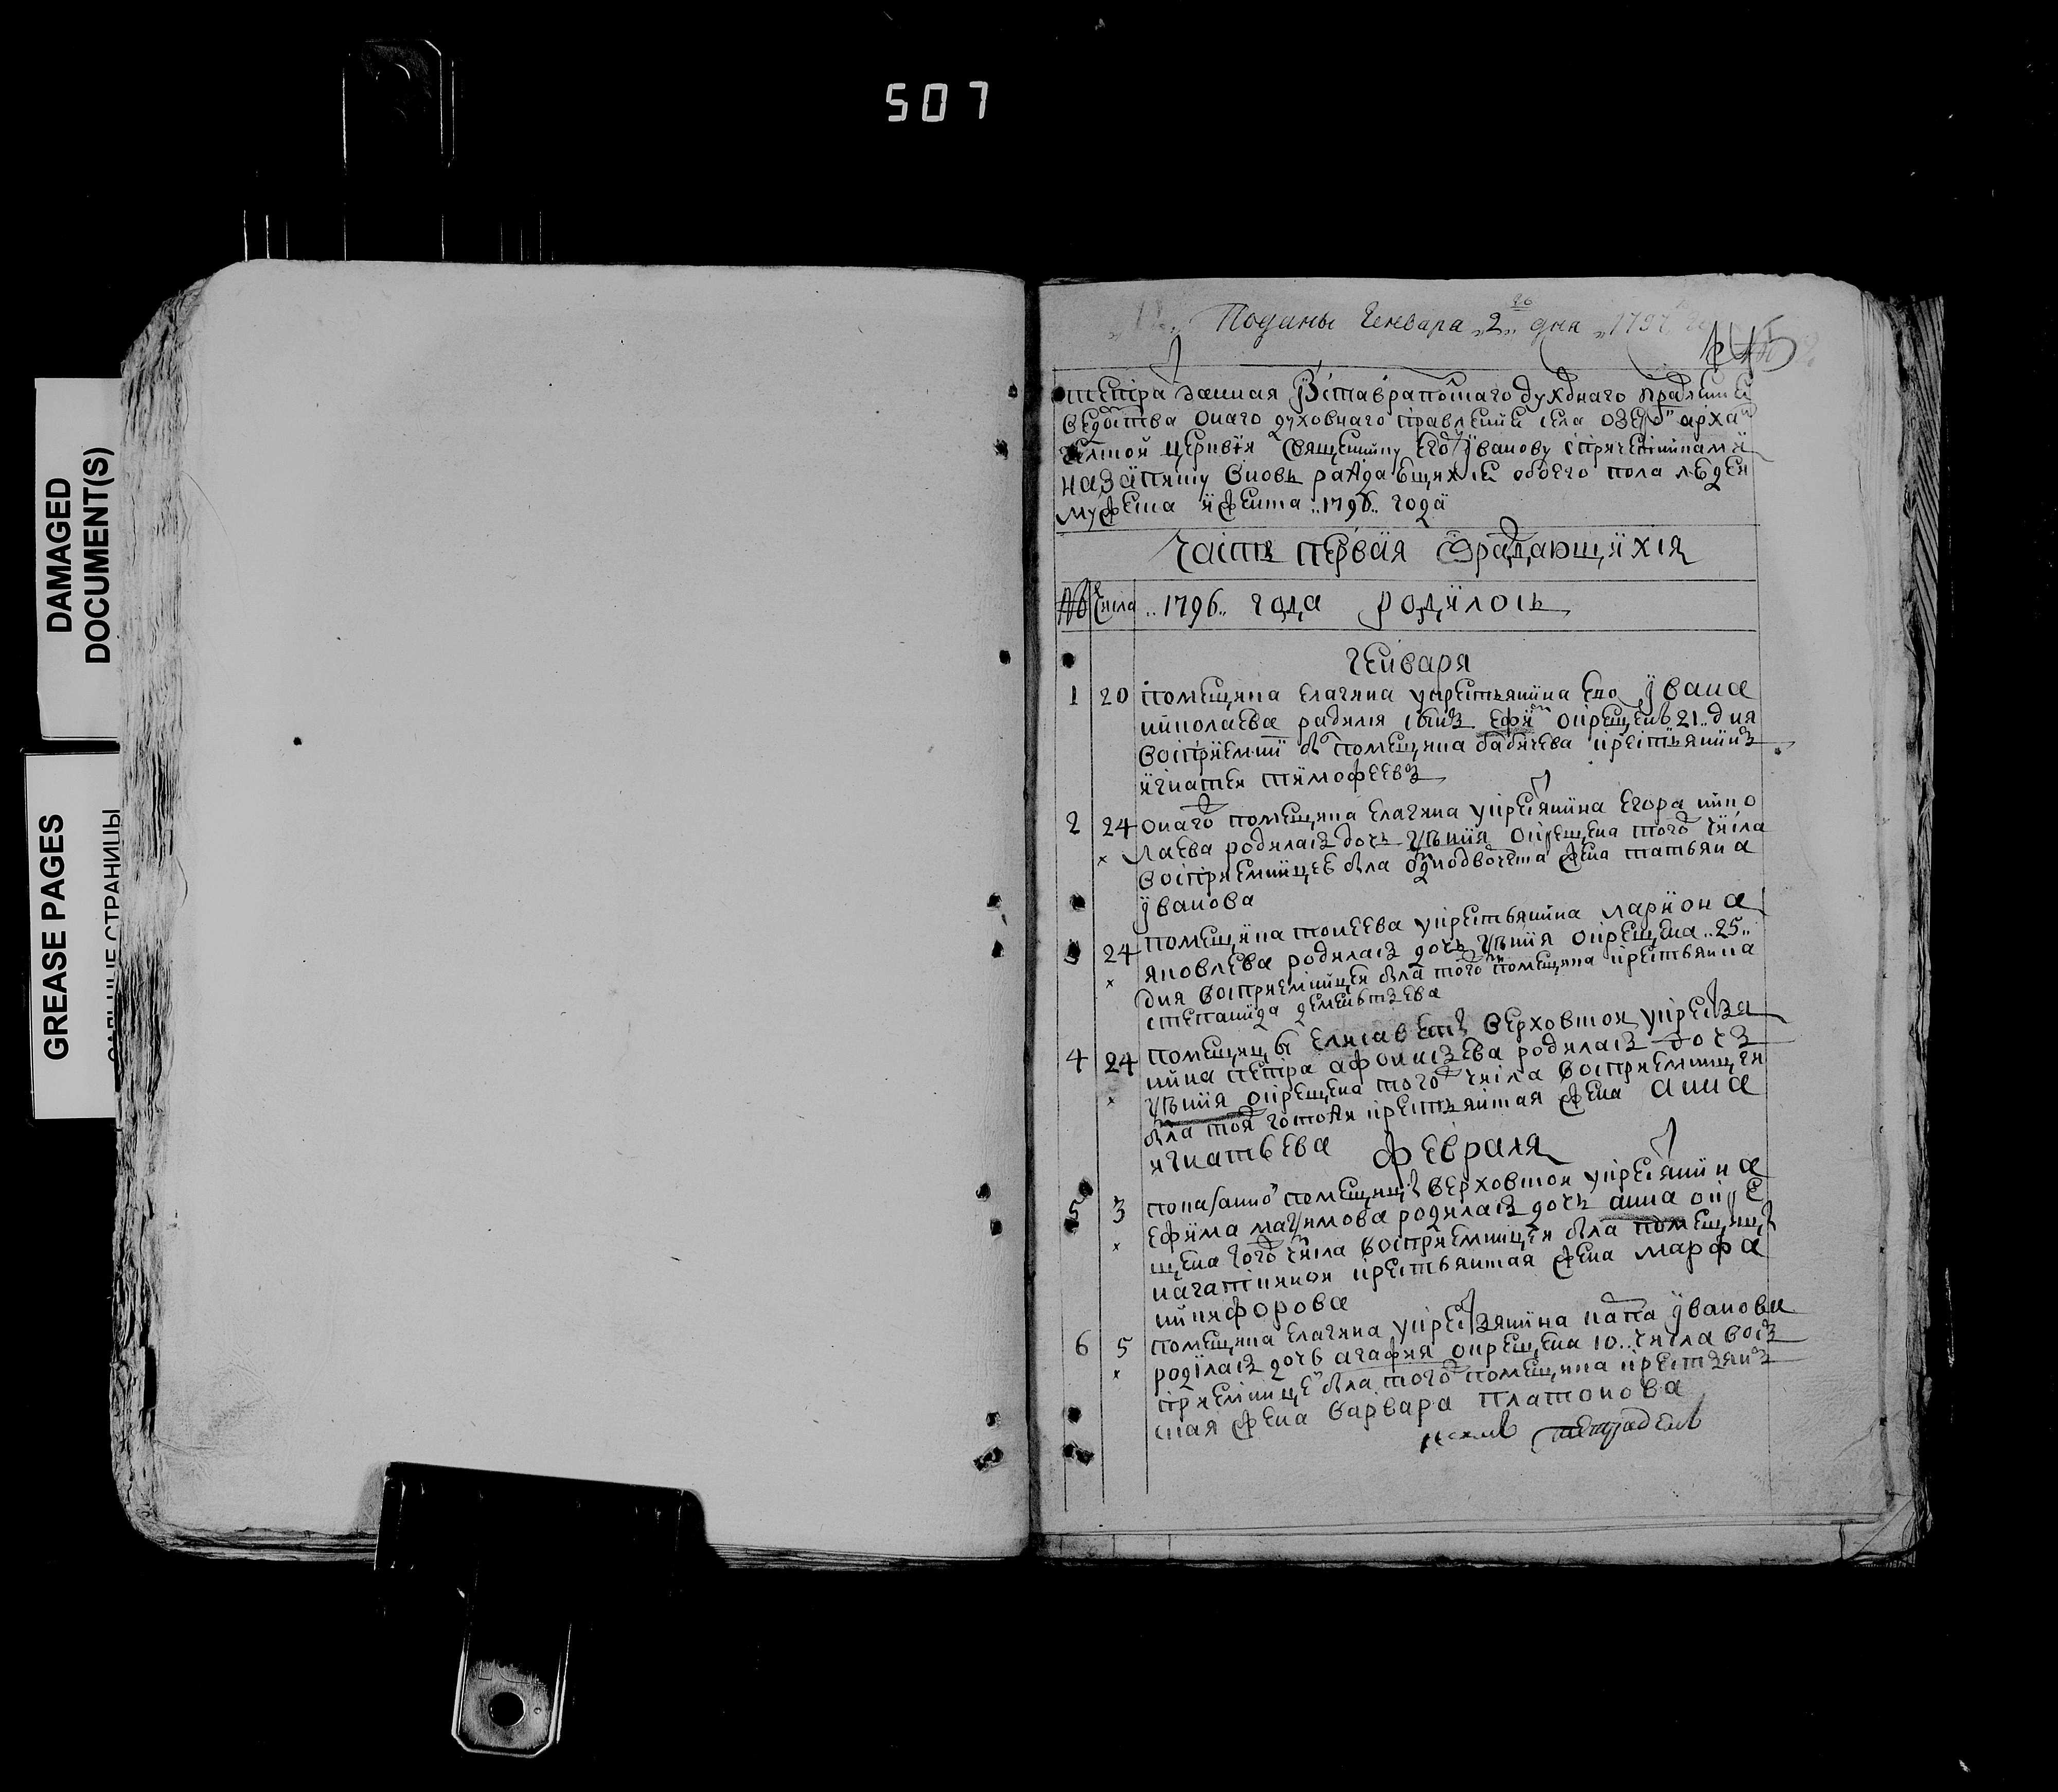 507
DAMAGED
DOCUMENT(S)
GREASE PAGES
СТРАНИЦЫ
Поданы Генваря 2 го дня 1797
145
тетра данная Вставрапошаго духовнаго правлении
ведомства онаго духовнаго правлении села озер арха
церквїя священнику Его Їванову спричетниками
на запяшу вновь раждаещихсе обоего пола людеи
мужеска и женска 1796 года
Часть первая Ораждающихся
№ числа 1796 года родилось
Генваря
1 20 помещика Елагина укрестьянина Ево Їванa
николаева радился сынъ Ефи окрещенъ 21 дня
восприемни бы помещика бабичева крестьянинъ
игнатеи тимофеевъ
2 24 онаго помещика Елагина укрестянина Егора нико
лаева родиласъ дочь ксения окрещена того числа
восприемницеи была однодворческа жена татьяна
Їванова
3 24 помещика укрестьянина лариона
яковлева родиласъ дочь ксения окрещена 25
дня восприемницеи была того помещика крестьянка
степанида дементъева
4 24 помещицы Елисаветы верховскои укрестья
нина петра афонасъева родиласъ дочъ
ксения окрещена того числа восприемницеи
была тоя госпожи крестьянская жена анна
игнатьева
Февраля
5 3 показанно помещицы верховскои укрестянина
Ефима максимова родиласъ дочь анна окре
щена того числа восприемницеи была помещицы
крестьянская жена марфа
никифорова
6 5 помещика Елагина укрестьянина Їванова
родиласъ дочь агафия окрещена 10 числа восъ
приемнице была того помещика крестъянъ
ская жена варвара платонова